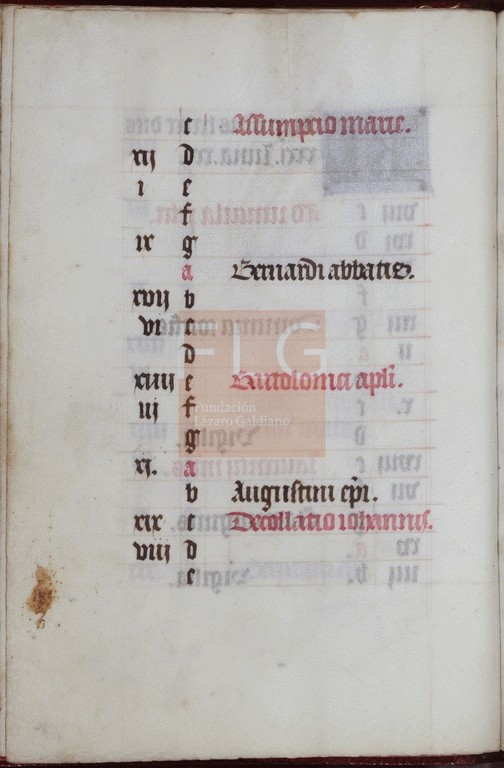 c Assumpcio marie.
xij d
i e
f
ix g
a Bernardi abbatis.
xvij b
vi c
d
xiiij e Bartolomei apli.
iij f
g
xj. a
b Augustini epi.
xix c Decollatio iohannis.
viij d
e
FLG
Fundación
Lázaro Galdiano